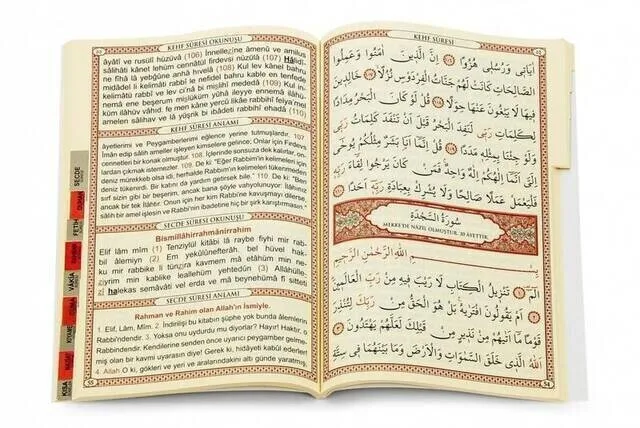 KEHF SÛRESİ OKUNUŞU
âyâtî ve rusulî hüzüvâ (106) İnnellezîne âmenû ve amilus
sâlihâti kânet lehüm cennâtül firdevsi nüzülâ (107) Hâlidî-
ne fîhâ lâ yebğûne anhâ hıvelâ (108) Kul lev kânel bahru
midâdel li kelimâti rabbî le nefidel bahru kable en tenfede
kelimâtü rabbî ve lev ci'nâ bi mislihî mededâ (109) Kul in-
nemâ ene beşerum mislüküm yûhâ ileyye ennemâ ilâhü-
küm ilâhüv vâhid, fe men kâne yercû likâe rabbihî felya'mel
amelen sâlihav ve lâ yüşrik bi ıbâdeti rabbihî ehadâ (110)
KEHF SÛRESİ ANLAMI
âyetlerimi ve Peygamberlerimi eğlence yerine tutmuşlardır. 107
İman edip salih ameller işleyen kimselere gelince; Onlar için Firdevs
cennetleri bir konak olmuştur. 108. İçlerinde sonsuza dek kalırlar, on-
lardan çıkmak istemezler. 109. De ki: "Eğer Rabbin'in kelimeleri için
deniz mürekkeb olsa idi, herhalde Rabbin'in kelimeleri tükenmeden
deniz tükenirdi. Bir katını da yardım getirsek bile." 110. De ki: "Ben
sırf sizin gibi bir beşerim, ancak bana şöyle vahyolunuyor: İlâhınız
ancak bir tek İlâhtır. Onun için her kim Rabbi'ne kavuşmayı ümit ederse,
salih bir amel işlesin ve Rabbi'nin ibadetine hiç bir şirk karıştırmasın."
SECDE SÛRESİ OKUNUŞU
Bismillâhirrahmânirrahîm
Elif lâm mîm (1) Tenzîylül kitâbi lâ raybe fîyhi mir rab-
bil âlemiyn (2) Em yekûlûnefterâh, bel hüvel hak-
ku mir rabbike li tünzira kavmem mâ etâhüm min ne-
ziyrim min kablike leallehüm yehtedûn (3) Allâhülle-
zî halekas semâvâti vel erda ve mâ beynehümâ fî sitteti
SECDE SÛRESİ ANLAMI
Rahman ve Rahim olan Allah'ın İsmiyle.
1. Elif, Lâm, Mîm. 2. İndirilişi bu kitabın şüphe yok bunda âlemlerin
Rabbi'ndendir. 3. Yoksa onu uydurdu mu diyorlar? Hayır! Haktır, o
Rabbindendir. Kendilerine senden önce uyarıcı peygamber gelme-
miş olan bir kavmi uyarasın diye! Gerek ki, hidâyeti kabûl ederler!
4. Allah O ki, gökleri ve yeri ve aralarındakini altı günde yaratmış,
55
SECDE
DUHAN
FETİH
VÂKIA
KIYAME
KISA
KEHF SÛRESİ
اٰيَاتِي وَرُسُلِي هُزُوًا ﴿١٠٦﴾ اِنَّ الَّذِينَ اٰمَنُوا وَعَمِلُوا
الصَّالِحَاتِ كَانَتْ لَهُمْ جَنَّاتُ الْفِرْدَوْسِ نُزُلًا ﴿١٠٧﴾ خَالِدِينَ
فِيهَا لَا يَبْغُونَ عَنْهَا حِوَلًا ﴿١٠٨﴾ قُلْ لَوْ كَانَ الْبَحْرُ مِدَادًا
لِكَلِمَاتِ رَبِّي لَنَفِدَ الْبَحْرُ قَبْلَ اَنْ تَنْفَدَ كَلِمَاتُ رَبِّي
وَلَوْ جِئْنَا بِمِثْلِهِ مَدَدًا ﴿١٠٩﴾ قُلْ اِنَّمَا اَنَا بَشَرٌ مِثْلُكُمْ يُوحٰى
اِلَيَّ اَنَّمَا اِلٰهُكُمْ اِلٰهٌ وَاحِدٌ فَمَنْ كَانَ يَرْجُوا لِقَاءَ رَبِّهِ
فَلْيَعْمَلْ عَمَلًا صَالِحًا وَلَا يُشْرِكْ بِعِبَادَةِ رَبِّهِ اَحَدًا ﴿١١٠﴾
سُورَةُ السَّجْدَةِ
MEKKE'DE NÂZİL OLMUŞTUR. 30 ÂYETTİR.
بِسْمِ اللهِ الرَّحْمٰنِ الرَّحِيمِ
الٓمٓ ﴿١﴾ تَنْزِيلُ الْكِتَابِ لَا رَيْبَ فِيهِ مِنْ رَبِّ الْعَالَمِينَ ﴿٢﴾
اَمْ يَقُولُونَ افْتَرٰيهُ بَلْ هُوَ الْحَقُّ مِنْ رَبِّكَ لِتُنْذِرَ
قَوْمًا مَا اَتٰيهُمْ مِنْ نَذِيرٍ مِنْ قَبْلِكَ لَعَلَّهُمْ يَهْتَدُونَ ﴿٣﴾
اَللهُ الَّذِي خَلَقَ السَّمٰوَاتِ وَالْاَرْضَ وَمَا بَيْنَهُمَا فِي سِتَّةِ
54